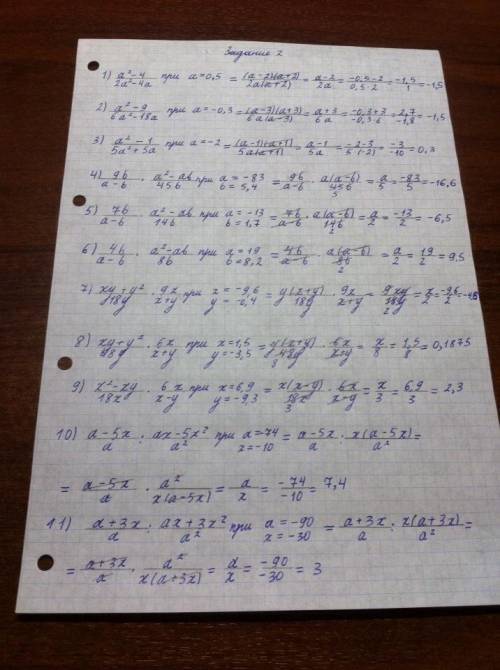 Задание 2
1) (a²-4)/(2a²-4a) при a=0,5 = ((a-2)(a+2))/(2a(a+2)) = (a-2)/(2a) = (-0,5-2)/(0,5·2) = (-1,5)/1 = -1,5
2) (a²-9)/(6a²-18a) при a=-0,3 = ((a-3)(a+3))/(6a(a-3)) = (a+3)/(6a) = (-0,3+3)/(-0,3·6) = 2,7/(-1,8) = -1,5
3) (a²-1)/(5a²+5a) при a=-2 = ((a-1)(a+1))/(5a(a+1)) = (a-1)/(5a) = (-2-3)/(5·(-2)) = (-3)/(-10) = 0,3
4) 9b/(a-b) · (a²-ab)/(45b) при a=-83 b=5,4 = 9b/(a-b) · (a(a-b))/(45b) 5 = a/5 = -83/5 = -16,6
5) 7b/(a-b) · (a²-ab)/(14b) при a=-13 b=1,7 = 7b/(a-b) · (a(a-b))/(14b) 2 = a/2 = -13/2 = -6,5
6) 4b/(a-b) · (a²-ab)/(8b) при a=19 b=8,2 = 4b/(a-b) · (a(a-b))/(8b) 2 = a/2 = 19/2 = 9,5
7) (xy+y²)/(18y) · 9x/(x+y) при x=-9,6 y=-0,4 = (y(x+y))/(18y) · 9x/(x+y) = 9xy/(18y) 2 = x/2 = -9,6/2 =
8) (xy+y²)/(48y) · 6x/(x+y) при x=1,5 y=-3,5 = (y(x+y))/(48y) 8 · 6x/(x+y) = x/8 = 1,5/8 = 0,1875
9) (x²-xy)/(18x) · 6x/(x-y) при x=6,9 y=-9,3 = (x(x-y))/(18x) 3 · 6x/(x-y) = x/3 = 6,9/3 = 2,3
10) (a-5x)/a : (ax-5x²)/a² при a=-74 x=-10 = (a-5x)/a : (x(a-5x))/a² =
= (a-5x)/a · a²/(x(a-5x)) = a/x = -74/-10 = 7,4
11) (a+3x)/a : (ax+3x²)/a² при a=-90 x=-30 = (a+3x)/a : (x(a+3x))/a² =
= (a+3x)/a · a²/(x(a+3x)) = a/x = -90/-30 = 3